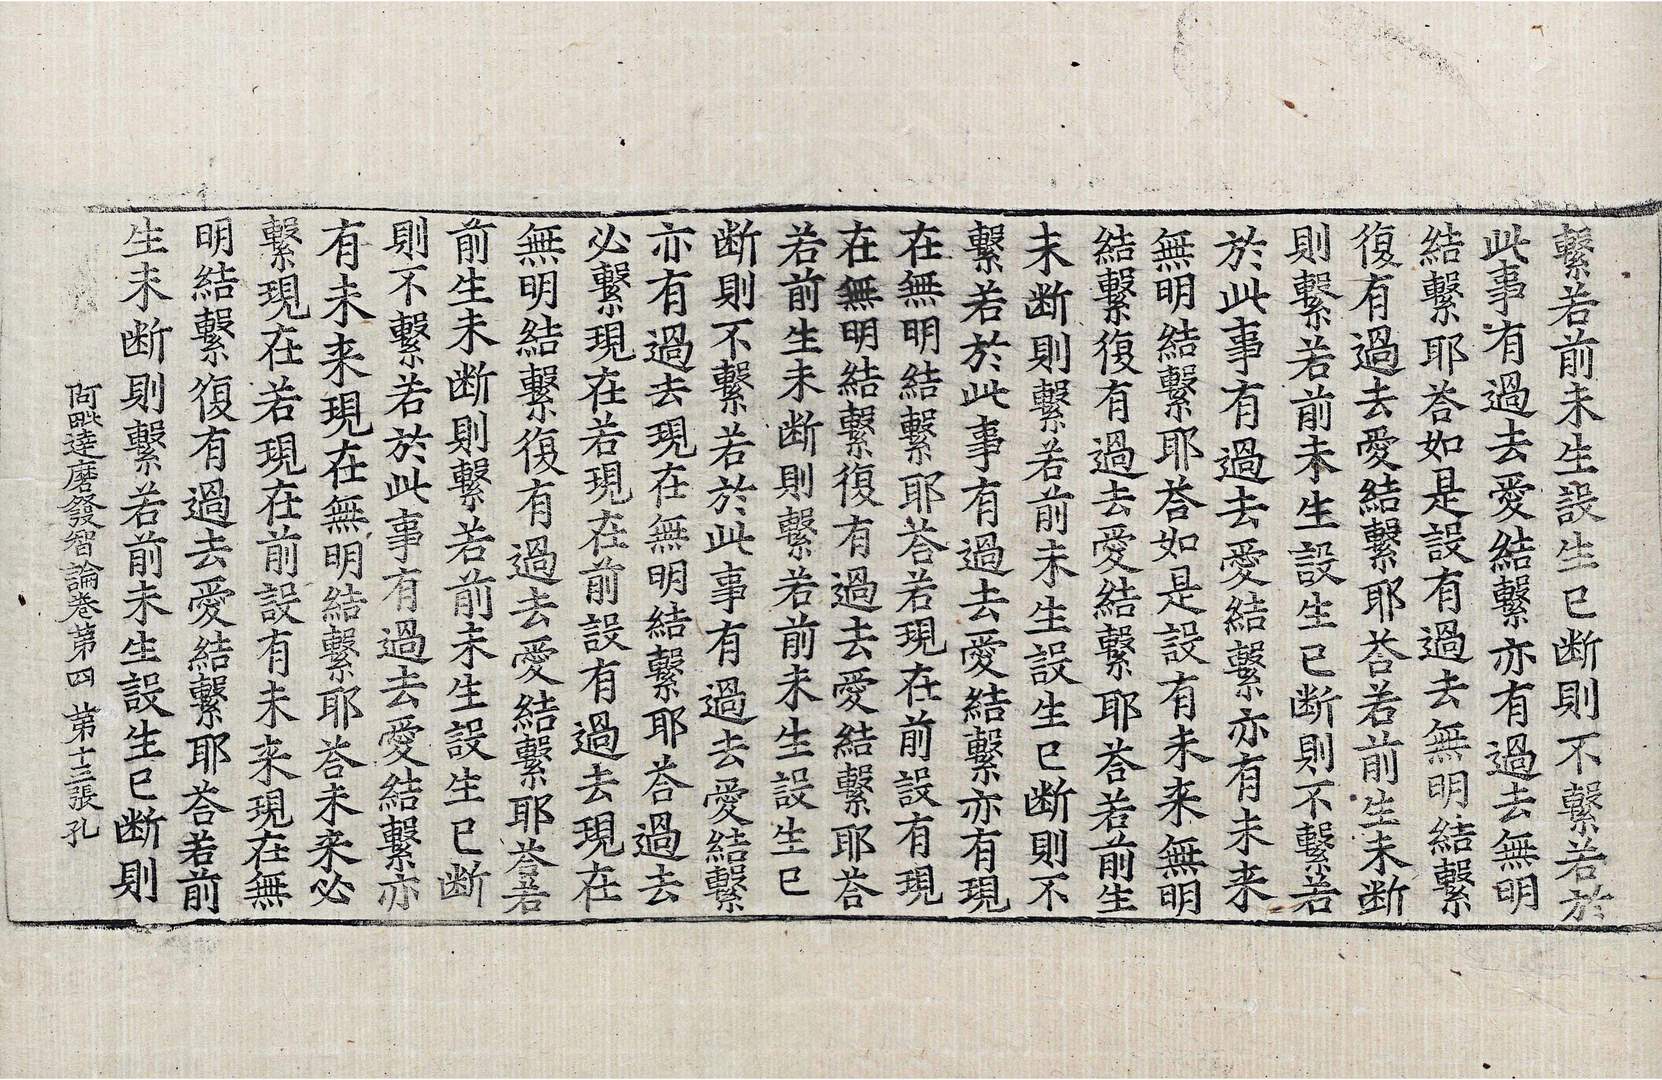 繫若前未生設生已断則不繫若於
此事有過去愛結繫亦有過去無明
結繫耶荅如是設有過去無明結繫
復有過去愛結繫耶荅若前生未断
則繫若前未生設生已断則不繫若
於此事有過去愛結繫亦有未来
無明結繫耶荅如是設有未来無明
結繫復有過去愛結繫耶荅若前生
未断則繫若前未生設生已断則不
繫若於此事有過去愛結繫亦有現
在無明結繫耶荅若現在前設有現
在無明結繫復有過去愛結繫耶荅
若前生未断則繫若前未生設生已
断則不繫若於此事有過去愛結繫
亦有過去現在無明結繫耶荅過去
必繫現在若現在前設有過去現在
無明結繫復有過去愛結繫耶荅若
前生未断則繫若前未生設生已断
則不繫若於此事有過去愛結繫亦
有未来現在無明結繫耶荅未来必
繫現在若現在前設有未来現在無
明結繫復有過去愛結繫耶荅若前
生未断則繫若前未生設生已断則
阿毗達磨發智論卷苐四 苐十三張 孔